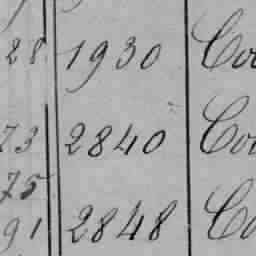 28 1930 Coo
73 2840 Coo
75
91 2848 Co